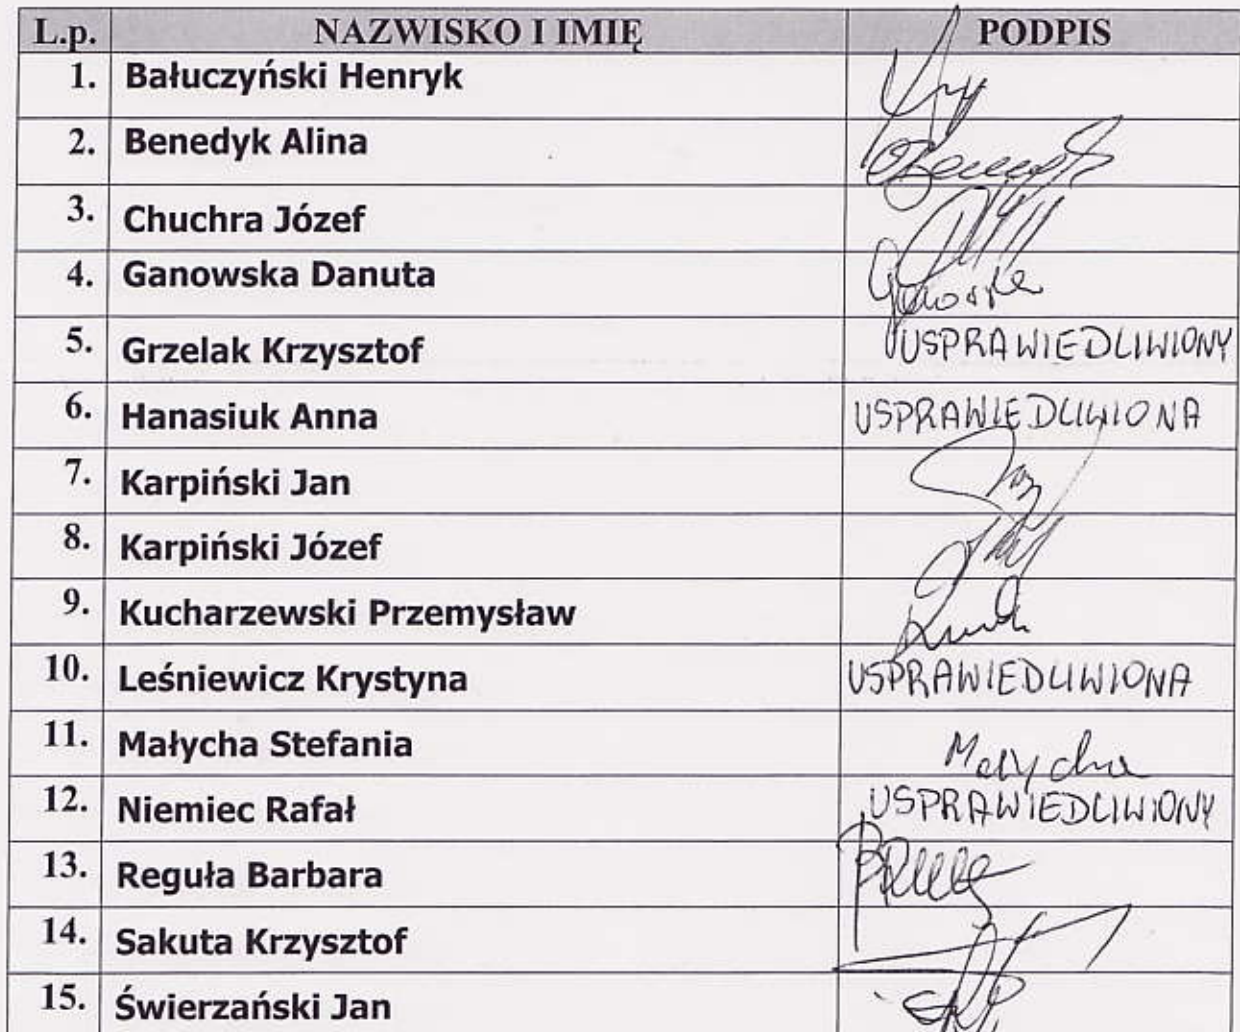 L.p. NAZWISKO I IMIĘ PODPIS
1. Bałuczyński Henryk
2. Benedyk Alina
3. Chuchra Józef
4. Ganowska Danuta
5. Grzelak Krzysztof USPRAWIEDLIWIONY
6. Hanasiuk Anna USPRAWIEDLIWIONA
7. Karpiński Jan
8. Karpiński Józef
9. Kucharzewski Przemysław
10. Leśniewicz Krystyna USPRAWIEDLIWIONA
11. Małycha Stefania Małycha
12. Niemiec Rafał USPRAWIEDLIWIONY
13. Reguła Barbara
14. Sakuta Krzysztof
15. Świerzański Jan